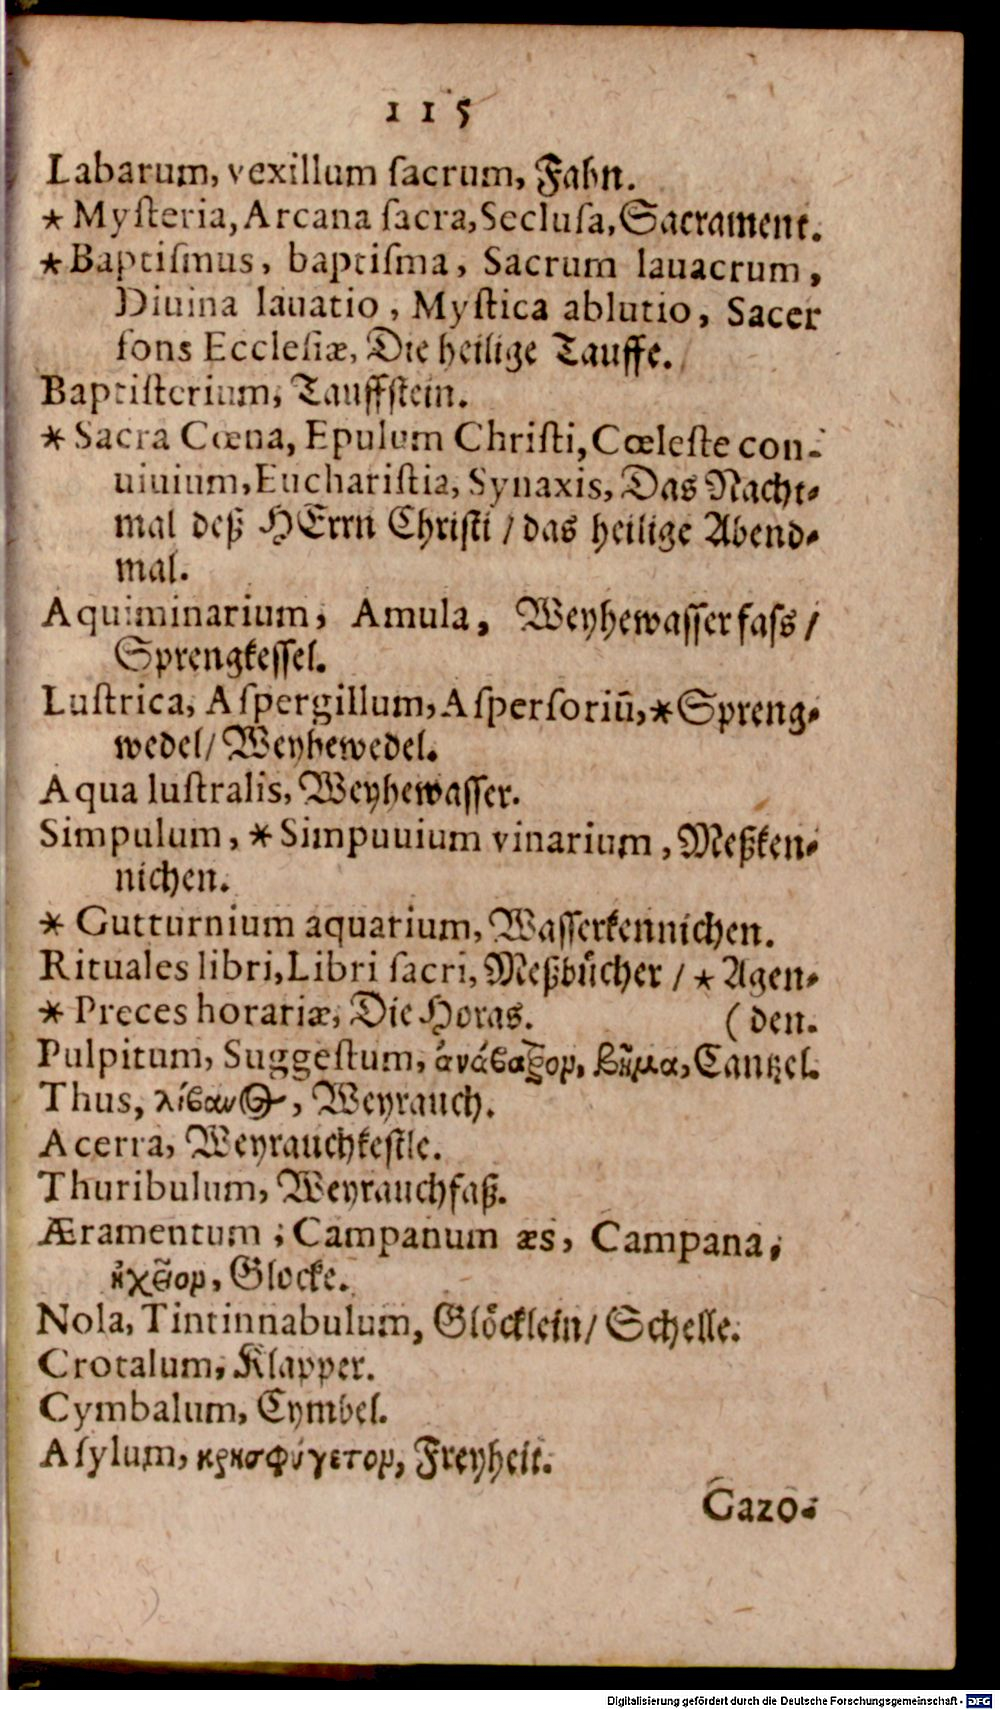 115
Labarum, vexillum ſacrum, Fahn.
* Myſteria, Arcana ſacra, Secluſa, Sacrament.
* Baptiſmus, baptiſma, Sacrum lauacrum,
Diuina lauatio, Myſtica ablutio, Sacer
fons Eccleſiæ, Die heilige Tauffe.
Baptiſterium, Tauffſtein.
* Sacra Cœna, Epulum Chriſti, Cœleſte con-
uiuium, Euchariſtia, Synaxis, Das Nacht-
mal deß HErrn Chriſti / das heilige Abend-
mal.
Aquiminarium, Amula, Weyhewaſſerfaſs /
Sprengkeſſel.
Luſtrica, Aſpergillum, Aſperſoriũ, * Spreng-
wedel / Weyhewedel.
Aqua luſtralis, Weyhewaſſer.
Simpulum, * Simpuuium vinarium, Meßken-
nichen.
* Gutturnium aquarium, Waſſerkennichen.
Rituales libri, Libri ſacri, Meßbücher / * Agen-
* Preces horariæ, Die Horas. (den.
Pulpitum, Suggeſtum, ἀνάβαθρον, βῆμα, Cantzel.
Thus, λίβανος, Weyrauch.
Acerra, Weyrauchkeſtle.
Thuribulum, Weyrauchfaß.
Æramentum; Campanum æs, Campana,
ἠχεῖον, Glocke.
Nola, Tintinnabulum, Glöcklein / Schelle.
Crotalum, Klapper.
Cymbalum, Cymbel.
Aſylum, κρησφύγετον, Freyheit.
Gazo-
Digitalisierung gefördert durch die Deutsche Forschungsgemeinschaft - DFG